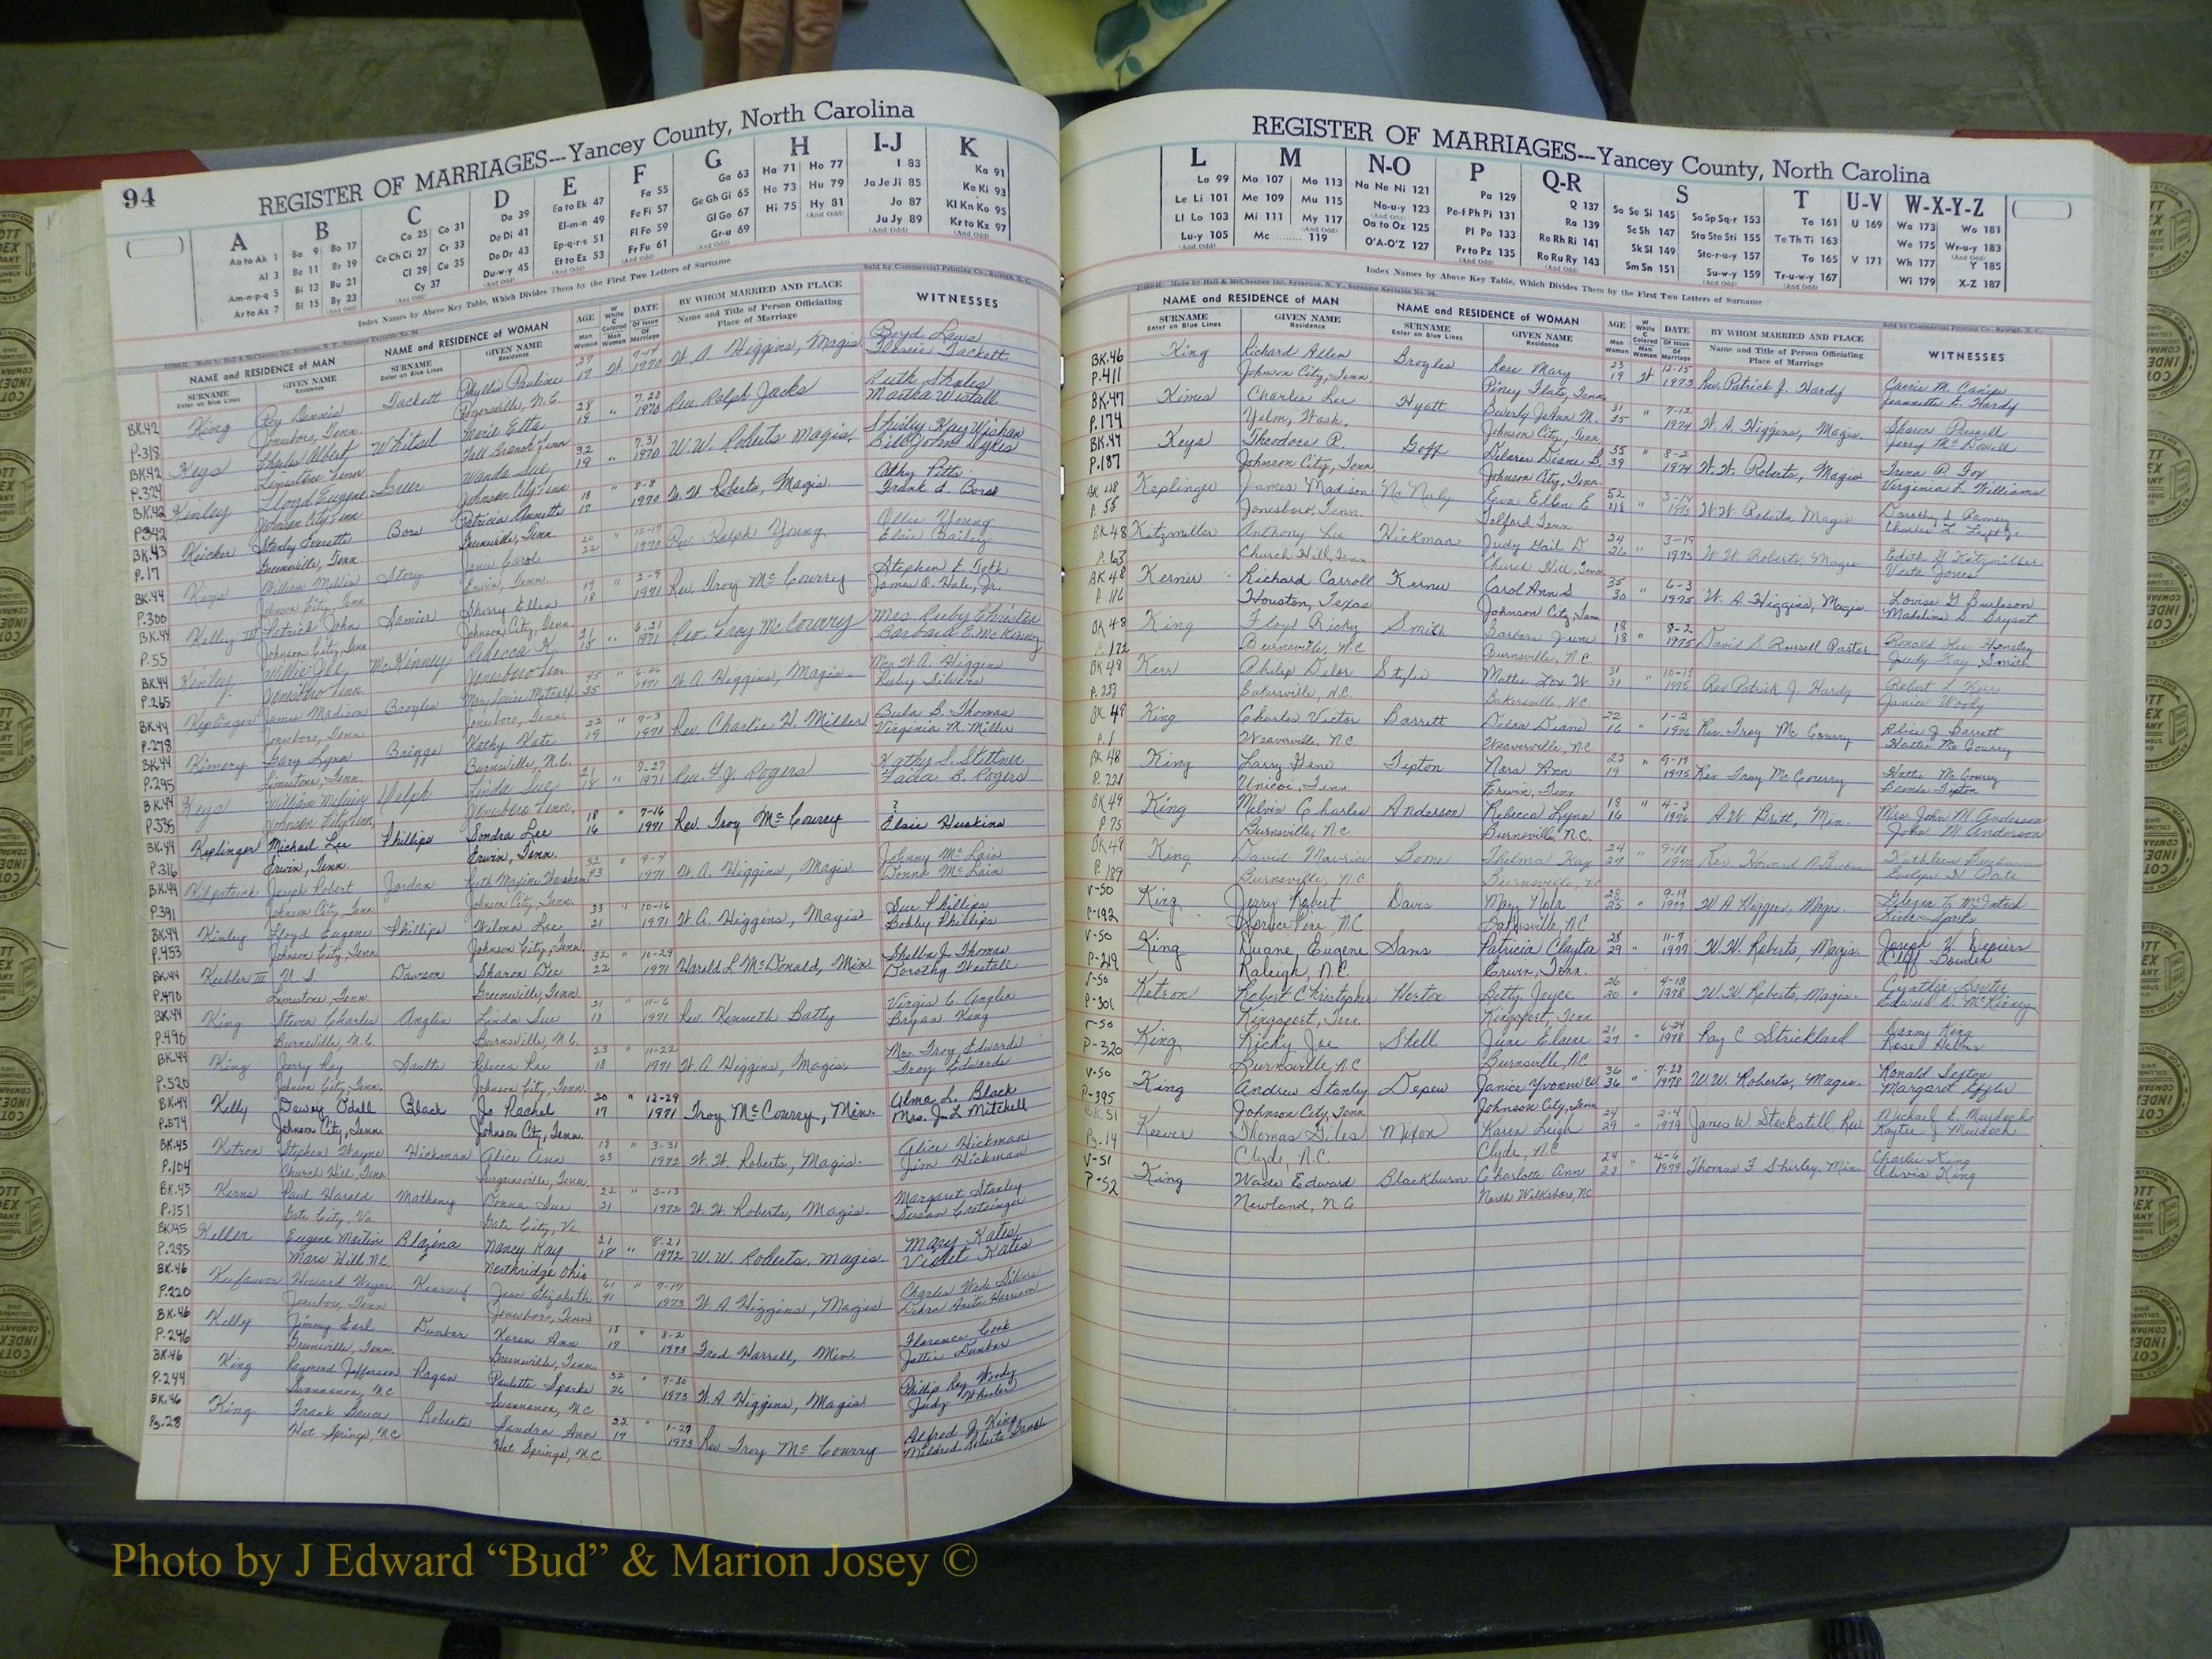 94
REGISTER OF MARRIAGES---Yancey County, North Carolina
A B C D E F G H I-J K
Aa to Ak 1
Al 3
Am-n-p-q 5
Ar to Az 7
Ba 9 Bo 17
Be 11 Br 19
Bi 13 Bu 21
Bl 15 By 23
Ca 25 Co 31
Ce Ch Ci 27 Cr 33
Cl 29 Cu 35
Cy 37
Da 39
De Di 41
Do Dr 43
Du-w-y 45
Ea to Ek 47
El-m-n 49
Ep-q-r-s 51
Et to Ez 53
Fa 55
Fe Fi 57
Fl Fo 59
Fr Fu 61
Ga 63
Ge Gh Gi 65
Gl Go 67
Gr-u 69
Ha 71 Ho 77
He 73 Hu 79
Hi 75 Hy 81
I 83
Ja Je Ji 85
Jo 87
Ju Jy 89
Ka 91
Ke Ki 93
Kl Kn Ko 95
Kr to Kz 97
Index Names by Above Key Table, Which Divides Them by the First Two Letters of Surname
NAME and RESIDENCE OF MAN NAME and RESIDENCE OF WOMAN AGE DATE BY WHOM MARRIED AND PLACE WITNESSES
BK.42 King Roy Dennis Tackett Phyllis Pauline 27 W. 7-14 W. A. Higgins, Magis. Boyd Laws
P.318 Jonesboro, Tenn. 17 1970 Flossie Tackett
BK.42 Keys Charles Albert Whitsel Marie Etta 28 " 7.20 Rev. Ralph Jacks Ruth Sholes
P.324 Limestone, Tenn Fall Branch Tenn 19 1970 Martha Westall
BK.42 Kinley Lloyd Eugene Greer Wanda Sue 32 " 7.31 W.W. Roberts Magis.
P.342 Johnson City Tenn Johnson City Tenn 19 1970
BK.43 Stanley Everette Patricia Annette 18 " 8-8 W. W. Roberts, Magis.
P.17 Greeneville, Tenn. Greeneville, Tenn 17 1970
BK.44 Keys William Melvin Story Jane Carol 22 12-19 Rev. Ralph Young Ollie Young
P.300 Johnson City, Tenn Erwin, Tenn. 1970 Elsie Bailey
BK.44 Kelley III Patrick John Sherry Ellen 19 " 2-9 Rev. Troy McCourry
P.55 Johnson City, Tenn Johnson City, Tenn 18 1971 James O. Hale, Jr.
BK.44 Kinley Willie Joe McKinney Rebecca K. 21 " 6-21 Rev. Troy McCourry Mrs. Ruby Christon
P.265 Jonesboro Tenn. Jonesboro Tenn. 18 1971 Barbara E. McKinney
BK.44 Keplinger James Madison Broyles 45 " W. A. Higgins, Magis. Mrs. W. A. Higgins
P.278 Jonesboro, Tenn. Jonesboro, Tenn. 35 1971 Ruby Silvers
BK.44 Kimery Gary Lynn Briggs Kathy Kate 22 " 7-3 Rev. Charlie H. Miller Bula B. Thomas
P.295 Limestone, Tenn. Burnsville, N.C. 19 1971 Virginia M. Miller
BK.44 Keys William Melvin Delph Linda Sue 21 " 7-27 Rev. F.J. Rogers Kathy S. Stettner
P.335 Johnson City Tenn Jonesboro Tenn. 18 1971
BK.44 Keplinger Michael Lee Phillips Sondra Lee 18 " 7-16 Rev. Troy McCourry ?
P.316 Erwin, Tenn. Erwin, Tenn. 16 1971 Elsie Huskins
BK.44 Kilpatrick Joseph Robert Jordan 52 " 9-4 W. A. Higgins, Magis Johnny McLain
P.391 Johnson City, Tenn Johnson City, Tenn. 43 1971 Donna McLain
BK.44 Kinley Lloyd Eugene Phillips Wilma Lee 33 " 10-16 W. A. Higgins, Magis Sue Phillips
P.453 Johnson City, Tenn Johnson City, Tenn. 21 1971 Bobby Phillips
BK.44 Keebler III W. S. Dawson Sharon Dee 32 " 10-29 Harold L McDonald, Min. Shelba J. Thomas
P.470 Limestone, Tenn. Greeneville, Tenn. 22 1971 Dorothy Westall
BK.44 King Steven Charles Anglin Linda Sue 21 " 11-6 Rev. Kenneth Batty Virgie C. Anglin
P.496 Burnsville, N.C. Burnsville, N.C. 18 1971 Bryan King
BK.44 King Jerry Ray Saults Rebecca Rae 23 " 11-22 W. A. Higgins, Magis. Mrs. Troy Edwards
P.520 Johnson City, Tenn. Johnson City, Tenn. 18 1971 Troy Edwards
BK.44 Kelly Dewey Odell Black Jo Rachel 20 " 12-29 Troy McCourry, Min. Alma L. Black
P.574 Johnson City, Tenn. Johnson City, Tenn. 17 1971 Mrs. J. L Mitchell
BK.45 Ketron Stephen Wayne Hickman Alice Ann 18 " 3-31 W. W. Roberts, Magis. Alice Hickman
P.104 Church Hill, Tenn. Surgoinsville, Tenn. 23 1972 Jim Hickman
BK.45 Kerns Paul Harold Matheny Donna Sue 22 " 5-13 W. W. Roberts, Magis. Margaret Stanley
P.151 Gate City, Va. Gate City, Va. 21 1972 Susan Cretsinger
BK.45 Keller Eugene Martin Blazina Nancy Kay 21 " 8-21 W. W. Roberts, Magis. Mary Kates
P.285 Mars Hill N.C. Northridge Ohio 18 1972 Violet Kates
BK.46 Keefauver Howard Wayne Jean Elizabeth 61 " 7-17 W. A. Higgins, Magis Charles Wade Silvers
P.220 Jonesboro, Tenn Jonesboro, Tenn 41 1973 Debra Anita Harrison
BK.46 Kelly Jimmy Earl Dunbar Karen Ann 18 " 8-2 Fred Harrell, Min. Florence Cook
P.246 Greeneville, Tenn. Greeneville, Tenn. 17 1973 Jettie Dunbar
BK.46 King Raymond Jefferson Ragan Paulette Sparks 32 " 7-30 W. A Higgins, Magis Phillip Ray Woody
P.244 Swannanoa, N.C Swannanoa, N.C 26 1973 Judy Wheeler
BK.46 King Frank Bruce Roberts Sandra Ann 22 " 1-27 Rev Troy McCourry Alfred J. King
Pg.28 Hot Springs, N.C Hot Springs, N.C 17 1973
REGISTER OF MARRIAGES---Yancey County, North Carolina
L M N-O P Q-R S T U-V W-X-Y-Z
La 99
Le Li 101
Ll Lo 103
Lu-y 105
Ma 107 Mo 113
Me 109 Mu 115
Mi 111 My 117
Mc ........ 119
Na Ne Ni 121
No-u-y 123
Oa to Oz 125
O'A-O'Z 127
Pa 129
Pe-f Ph Pi 131
Pl Po 133
Pr to Pz 135
Q 137
Ra 139
Re Rh Ri 141
Ro Ru Ry 143
Sa Se Si 145 Sa Sp Sq-r 153
Sc Sh 147 Sta Ste Sti 155
Sk Sl 149 Sto-r-u-y 157
Sm Sn 151 Su-w-y 159
Ta 161
Te Th Ti 163
To 165
Tr-u-w-y 167
U 169
V 171
Wa 173 Wo 181
We 175 Wr-u-y 183
Wh 177 Y 185
Wi 179 X-Z 187
Index Names by Above Key Table, Which Divides Them by the First Two Letters of Surname
NAME and RESIDENCE OF MAN NAME and RESIDENCE OF WOMAN AGE DATE BY WHOM MARRIED AND PLACE WITNESSES
BK.46 King Richard Allen Broyles Rose Mary 23 W. 12-15 Rev. Patrick J. Hardy Carrie M. Canipe
P.411 Johnson City, Tenn. Piney Flats, Tenn. 19 1973 Jeannette E. Hardy
BK.47 Kimes Charles Lee Hyatt Beverly JoAnn M. 31 " 7-12 W. A. Higgins, Magis. Sharon Russell
P.174 Yelm, Wash. Johnson City, Tenn. 35 1974 Jerry McDowell
BK.47 Keys Theodore R. Goff Delores Diane B. 55 " 8-2 W. W. Roberts, Magis Trena P. Fox
P.187 Johnson City, Tenn Johnson City, Tenn. 39 1974 Virginia L. Williams
BK 48 Keplinger James Madison McNeely Eva Ellen E 52 " 3-14 W. W. Roberts, Magis Dorothy S Ramsey
P. 55 Jonesboro, Tenn. Telford Tenn. 48 1975
BK 48 Kitzmiller Anthony Lee Hickman Judy Gail D. 24 " 3-19 W. W. Roberts, Magis Edith H Kitzmiller
P.63 Church Hill, Tenn Church Hill, Tenn 26 1975 Veita Jones
BK 48 Kerner Richard Carroll Kerner Carol Ann S 35 " 6-3 W. A. Higgins, Magis. Louise G Burleson
P 116 Houston, Texas Johnson City, Tenn 30 1975 Madeline S. Bryant
BK 48 King Floyd Ricky Smith Barbara June 18 " 8-2 David S. Russell Pastor Ronald Lee Hensley
P.172 Burnsville, N.C Burnsville, N.C. 18 1975 Judy Kay Smith
BK 48 Kerr Philip Delor Styles 31 10-18 Rev Patrick J. Hardy Robert L Kerr
P.253 Bakersville, N.C. Bakersville, N.C 31 1975 Janice Woody
BK 49 King Charles Victor Barrett Debra Diane 22 " 1-2 Rev. Troy McCourry Alice J Barrett
P.1 Weaverville, N.C. Weaverville, N.C 16 1976 Hattie McCourry
BK 48 King Larry Gene Tipton Nora Ann 23 " 9-19 Rev Troy McCourry Hattie McCourry
P. 231 Unicoi, Tenn Erwin, Tenn 19 1975 Brenda Tipton
BK 49 King Melvin Charles Anderson Rebecca Lynn 18 " 4-3 A. W. Britt, Min. Mrs. John M. Anderson
P 75 Burnsville, N.C Burnsville, N.C. 16 1976 John M. Anderson
BK 49 King David Maurice Boone Thelma Kay 24 " 9-18
P. 189 Burnsville, N.C Burnsville, N.C 27 1976 Evelyn H Pate
V-50 King Jerry Robert Davis Mary Nola 28 " 9-19 W A Higgins, Magis.
P-192 Spruce Pine, N.C Bakersville, N.C 25 1977
V-50 King Duane, Eugene Sams Patricia Clayton 28 " 11-7 W. W. Roberts, Magis.
P-219 Raleigh, N.C. Erwin, Tenn. 29 1977 Cliff Bowen
V-50 Ketron Robert Christopher Horton Betty Joyce 26 " 4-18 W. W Roberts, Magis.
P-301 Kingsport, Tenn. Kingsport, Tenn. 20 1978 Edward D. McKinney
V-50 King Ricky Joe Shell June Elaine 21 " 6-24 Ray C Strickland Danny King
P-320 Burnsville, N.C Burnsville, N.C 27 1978 Rose Helms
V-50 King Andrew Stanley Depew Janice Yvonne W 36 " 7-28 W. W. Roberts, Magis. Ronald Sexton
P-395 Johnson City Tenn Johnson City, Tenn 36 1978 Margaret Effler
BK.51 Keever Thomas Siles Mixon Karen Leigh 24 " 2-4 James W Stockstill Rev Michael E. Murdock
Pg-14 Clyde, N.C. Clyde, N.C 29 1979 Kaytee J Murdock
V-51 King Wade Edward Blackburn Charlotte Ann 24 " 4-6 Thomas F. Shirley, Min Charlie King
P-52 Newland, N C North Wilkesboro, N.C 23 1979 Olivia King
Photo by J Edward “Bud” & Marion Josey ©